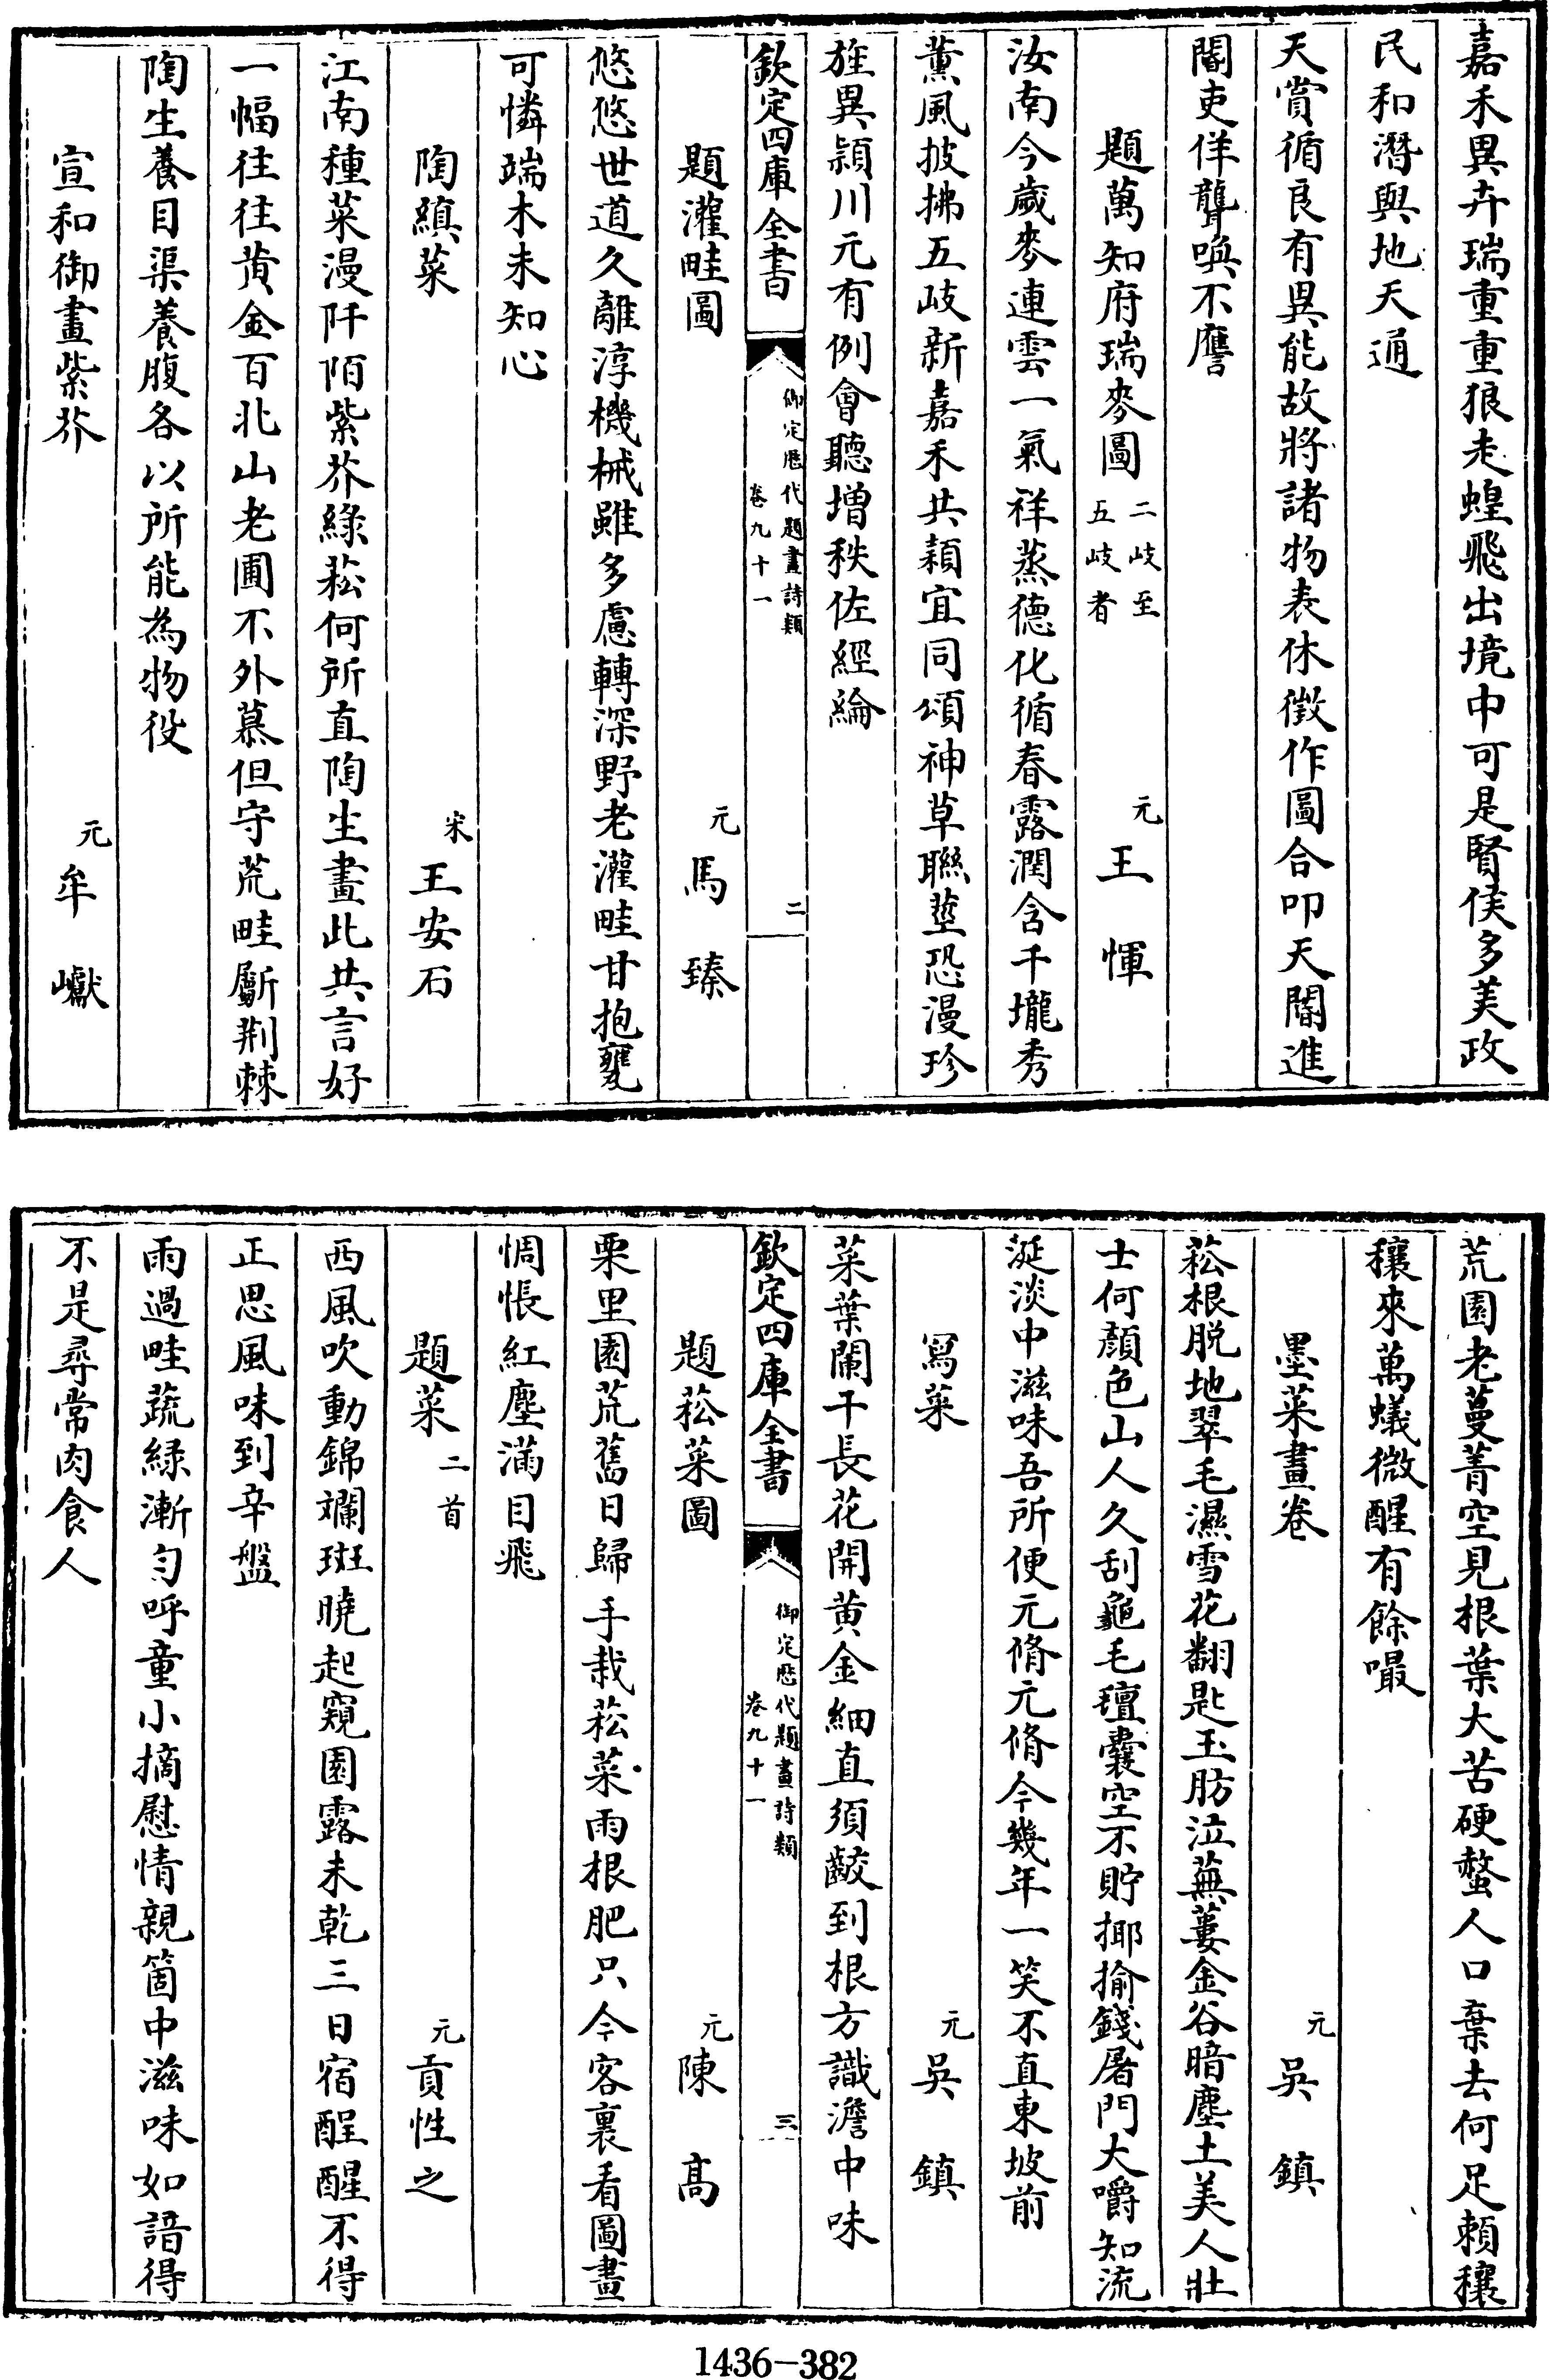 嘉禾異卉瑞重重狼走蝗飛出境中可是賢侯多美政
民和潛與地天通
天賞循良有異能故將諸物表休徵作圖合叩天閽進
閽吏佯聾喚不譍
題萬知府瑞麥圖 二歧至五歧者 元 王惲
汝南今歲麥連雲一氣祥蒸德化循春露潤含千壠秀
薰風披拂五岐新嘉禾共穎宜同頌神草聯莖恐漫珍
旌異潁川元有例會聽增秩佐經綸
欽定四庫全書 御定歷代題畫詩類 卷九十一 二
題灌畦圖 元 馬臻
悠悠世道久離淳機械雖多慮轉深野老灌畦甘抱甕
可憐端木未知心
陶縝菜 宋 王安石
江南種菜漫阡陌紫芥綠菘何所直陶生畫此共言好
一幅往往黃金百北山老圃不外慕但守荒畦斸荆棘
陶生養目渠養腹各以所能為物役
宣和御畫紫芥 元 牟巘
荒園老蔓菁空見根葉大苦硬螫人口棄去何足賴穰
穰來萬蟻微醒有餘嘬
墨菜畫卷 元 吳鎮
菘根脱地翠毛濕雪花翻匙玉肪泣蕪蔞金谷暗塵土美人壯
士何顏色山人久刮龜毛氊囊空不貯揶揄錢屠門大嚼知流
涎淡中滋味吾所便元脩元脩今幾年一笑不直東坡前
寫菜 元 吳鎮
菜葉闌干長花開黄金細直須齩到根方識澹中味
欽定四庫全書 御定歷代題畫詩類 卷九十一 三
題菘菜圖 元 陳高
栗里園荒舊日歸手栽菘菜雨根肥只今客裏看圖畫
惆悵紅塵滿目飛
題菜 二首 元 貢性之
西風吹動錦斓斑曉起窺園露未乾三日宿酲醒不得
正思風味到辛盤
雨過畦蔬緑漸勻呼童小摘慰情親箇中滋味如諳得
不是尋常肉食人
1436-382